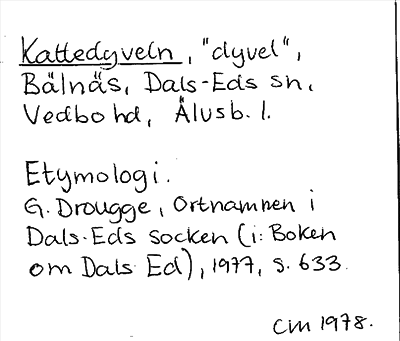 Kattedyveln, "dyvel",
Bälnäs, Dals-Eds sn,
Vedbo hd, Älvsb. l.
Etymologi.
G. Drougge, Ortnamnen i
Dals-Eds socken (i: Boken
om Dals Ed), 1977, s. 633.
CM 1978.